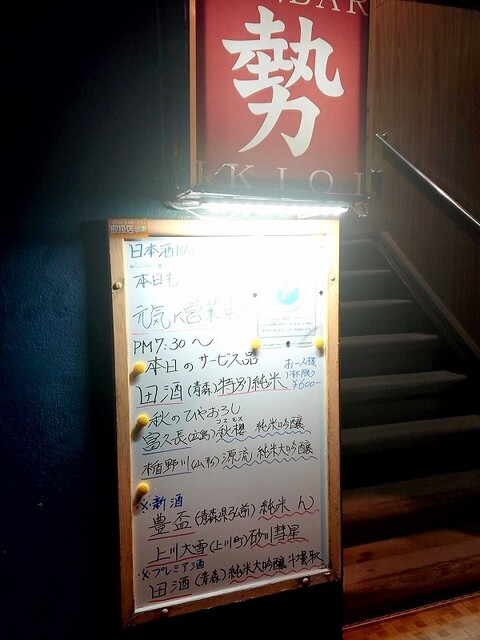 BAR
勢
KKIOI
取扱店
日本酒BAR
本日も
元気に営業中
PM7:30 〜
本日のサービス品
田酒(青森)特別純米
お一人様
1杯限り
¥600-
秋のひやおろし
富久長(広島)秋櫻 純米吟醸
コスモス
楯野川(山形)源流 純米大吟醸
※新酒
豊盃(青森県弘前)純米 ん
上川大雪(上川町)砂川彗星
※プレミア酒
田酒(青森)純米大吟醸 斗壜取